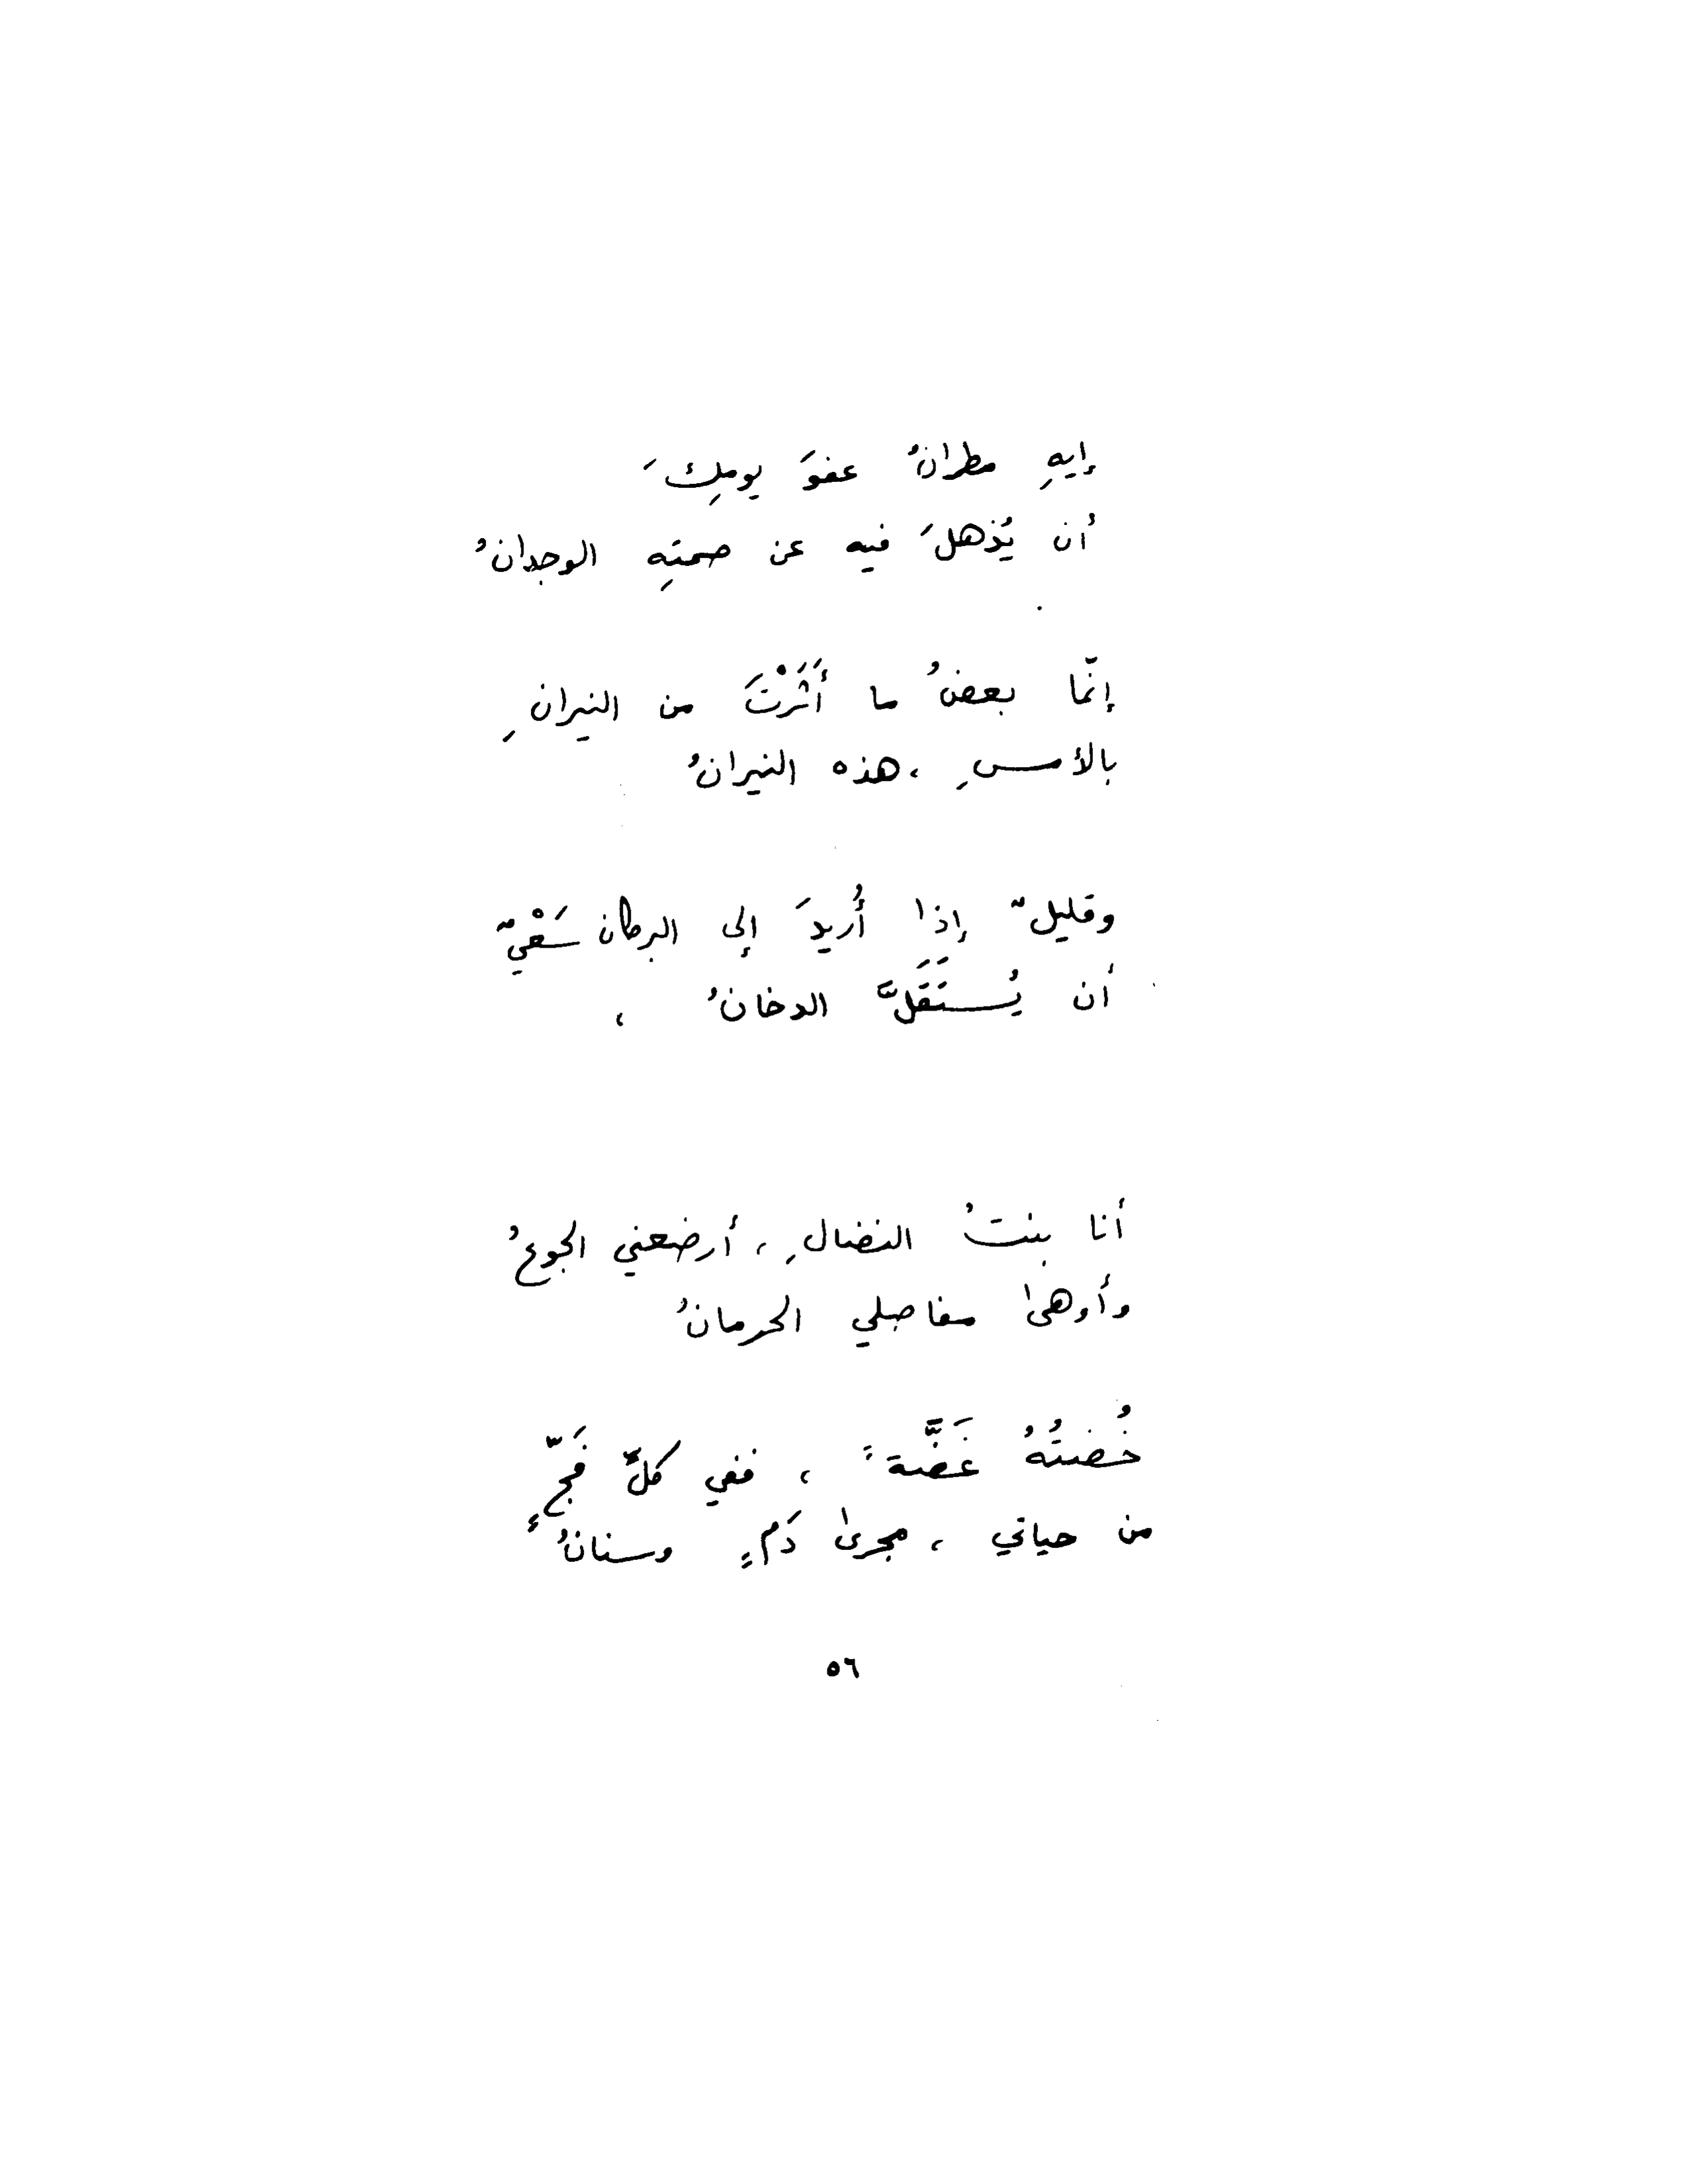 إيهِ مطرانُ عفوَ يومِكَ
أن يُذهلَ فيه عن صمتِهِ الوجدانُ
إنّما بعضُ ما أَثَرْتَ من النيرانِ
بالأمسِ ، هذه النيرانُ
وقليلٌ إذا أُريدَ إلى البركان سَعْيٌ
أن يُستَقَلَّ الدخانُ ،
أنا بنتُ النضالِ ، أرضعني الجوعُ
وأوهىٰ مفاصلي الحرمانُ
خُضتُهُ غَضَّةً ، ففي كلِّ فَجٍّ
من حياتي ، مجرىٰ دَمٍ وسنانُ
٥٦